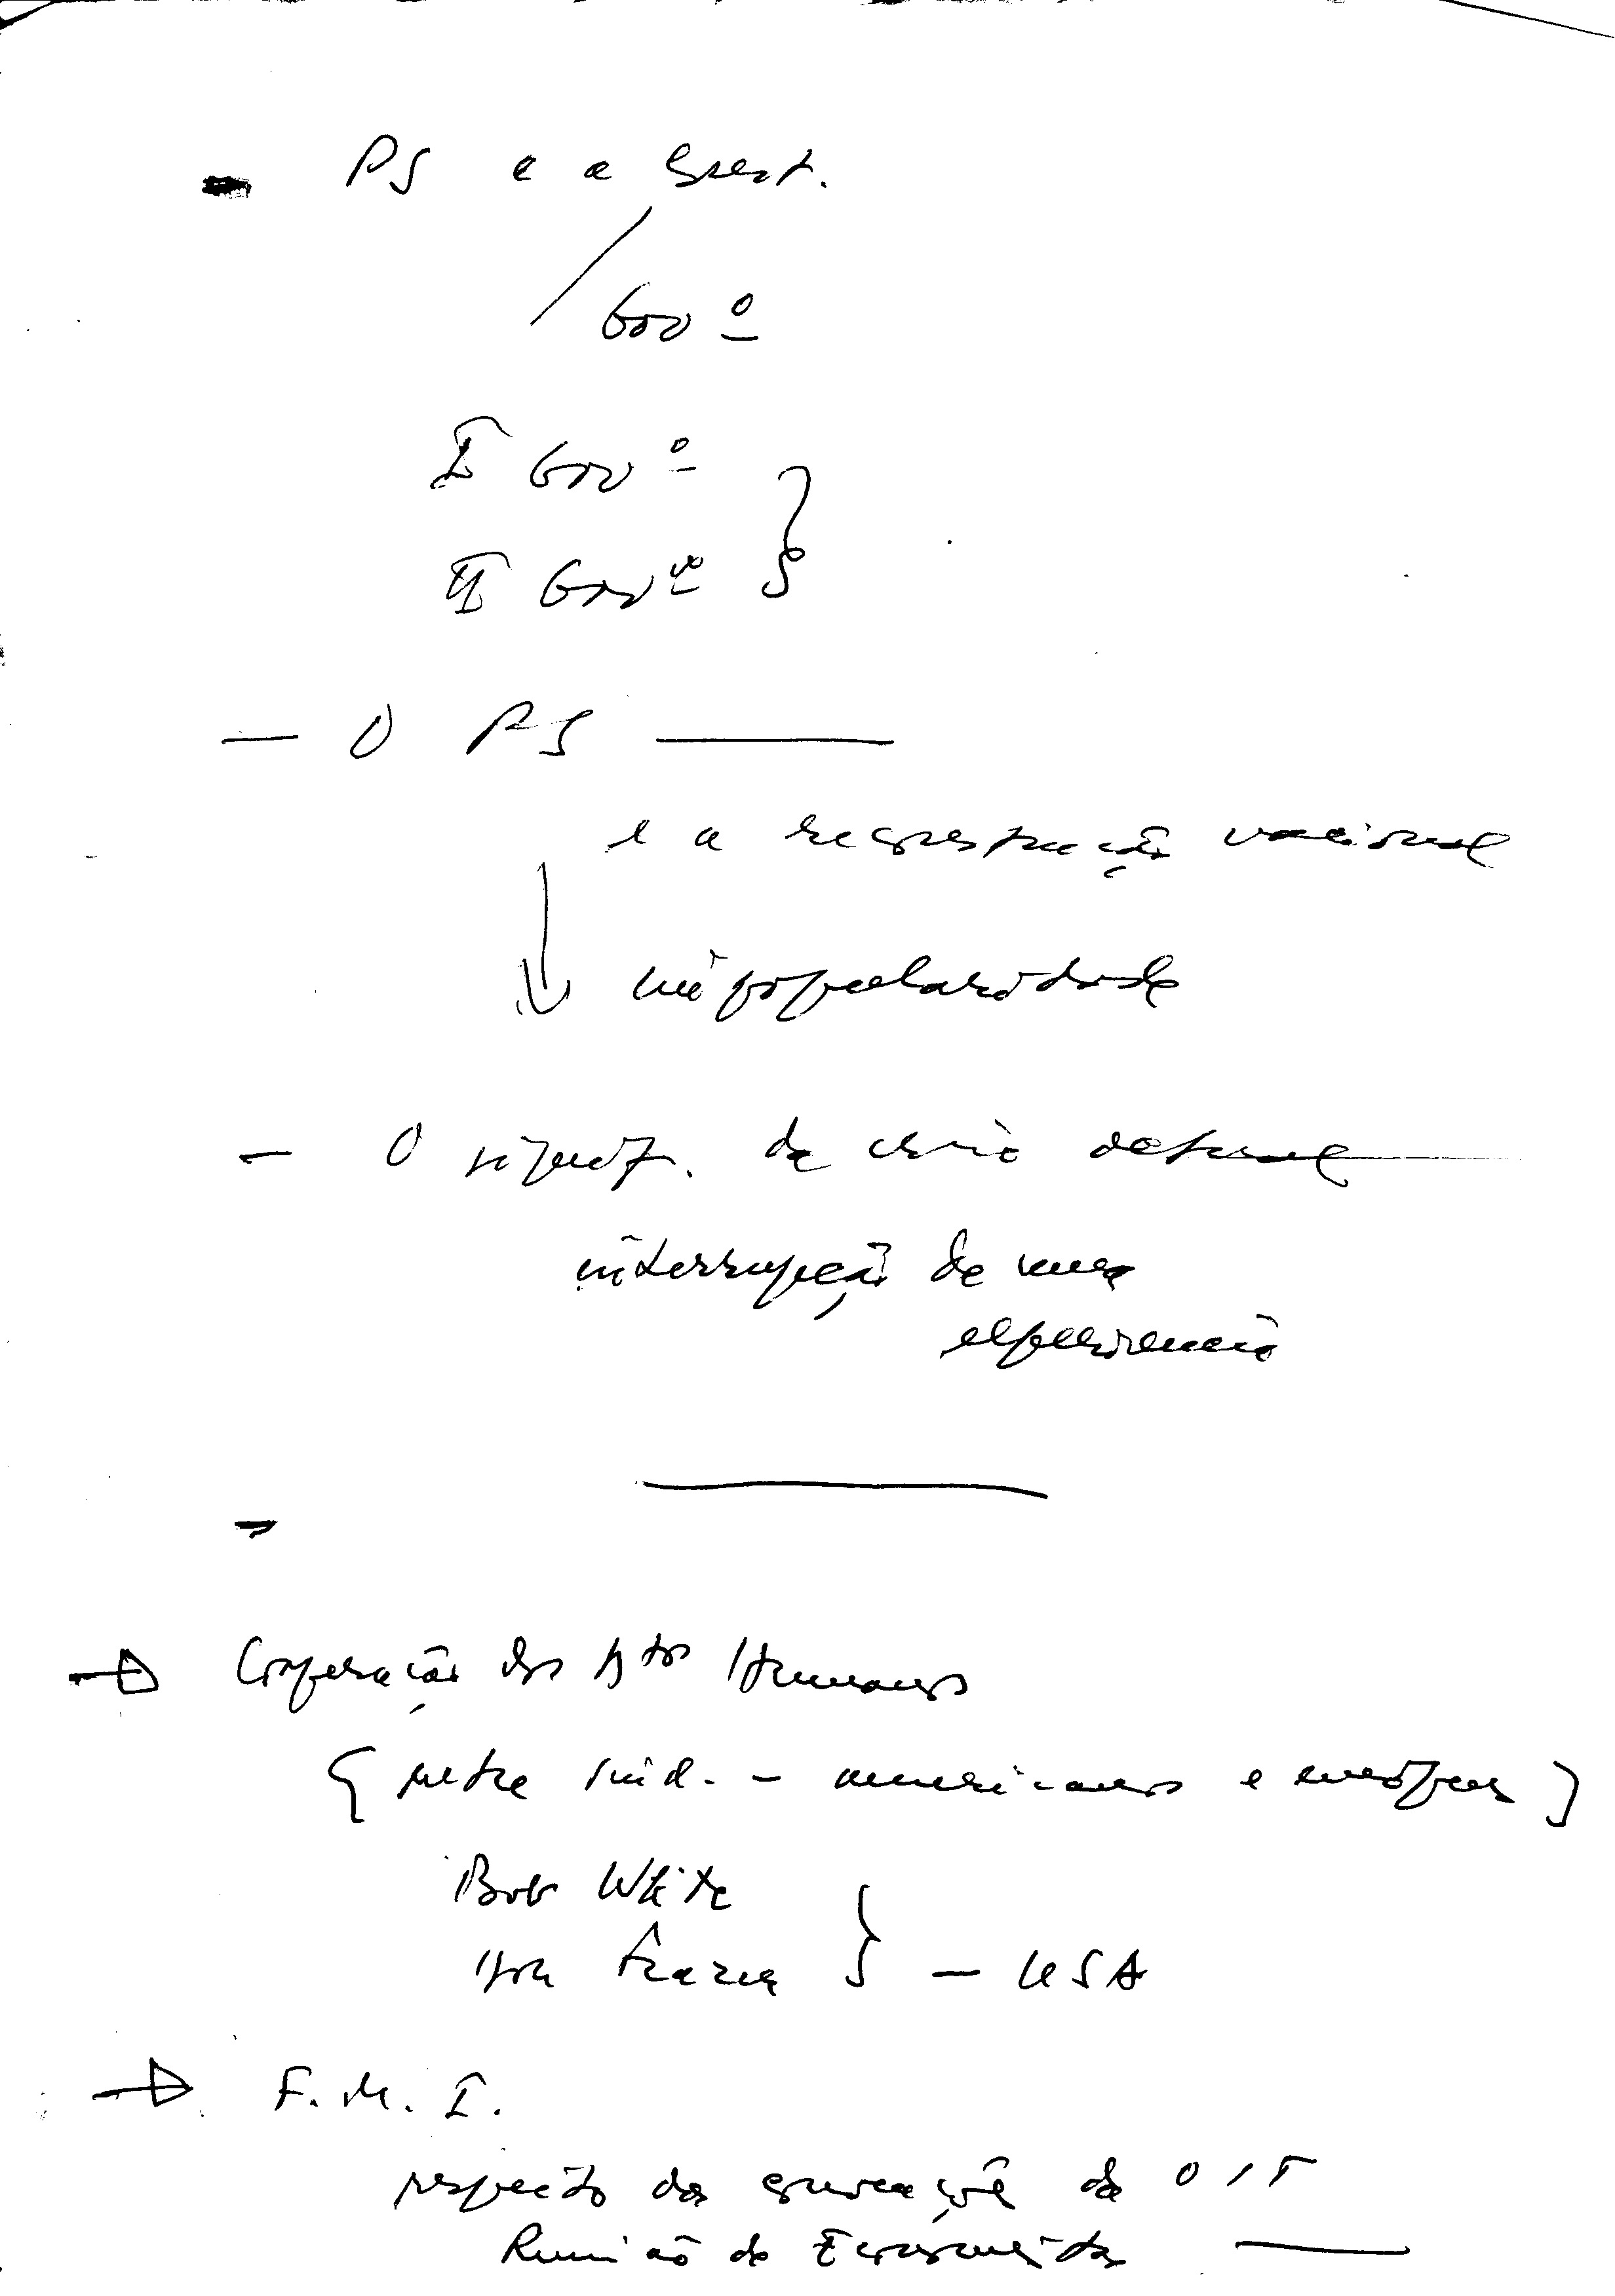 - PS e a
/ Gov º
I Gov º
II Gov º
- O PS —
e a reconstrução nacional
impopularidade
- O signif. da crise actual —
interrupção de uma
experiência
→ Cooperação dos Dtos Humanos
{ entre sind. - americanos e europeus }
Bob White
USA
→ F.M.I.
respeito das convenções da OIT
Reunião de Economistas —